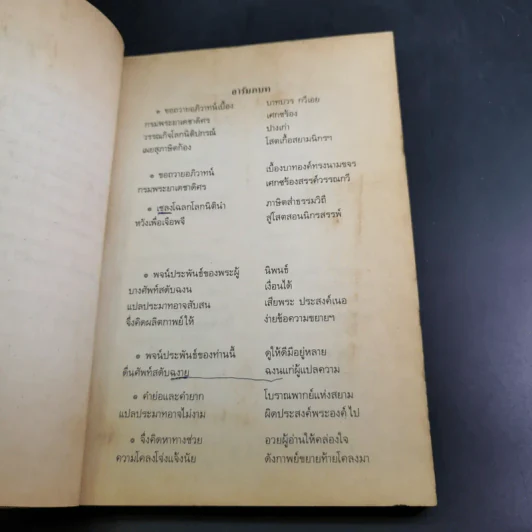 อารัมภบท
๏ ขอถวายอภิวาทน์เบื้อง บาทบวร กวีเอย
กรมพระยาเดชาดิศร เศกซร้อง
วรรณกิจโลกนิติปกรณ์ ปางเก่า
เผยสุภาษิตก้อง โสตเกื้อสยามนิกรฯ
๏ ขอถวายอภิวาทน์ เบื้องบาทองค์ทรงนามขจร
กรมพระยาเดชาดิศร เศกซร้องสรรค์วรรณกวี
๏ เชลงโฉลกโลกนิตินำ ภาษิตล้ำธรรมวิถี
หวังเพื่อเจือพจี สู่โสตสอนนิกรสรรพ์
๏ พจน์ประพันธ์ของพระผู้ นิพนธ์
บางศัพท์สดับฉงน เงื่อนได้
แปลประมาทอาจสับสน เสียพระ ประสงค์เนอ
จึ่งคิดผลิตกาพย์ให้ ง่ายข้อความขยายฯ
๏ พจน์ประพันธ์ของท่านนี้ ดูให้ดีมีอยู่หลาย
ตื่นศัพท์สดับฉงาย ฉงนแก่ผู้แปลความ
๏ คำย่อและคำยาก โบราณพากย์แห่งสยาม
แปลประมาทอาจไม่งาม ผิดประสงค์พระองค์ไป
๏ จึ่งคิดหาทางช่วย อวยผู้อ่านให้คล่องใจ
ความโคลงโจ่งแจ้งนัย ดังกาพย์ขยายท้ายโคลงมา